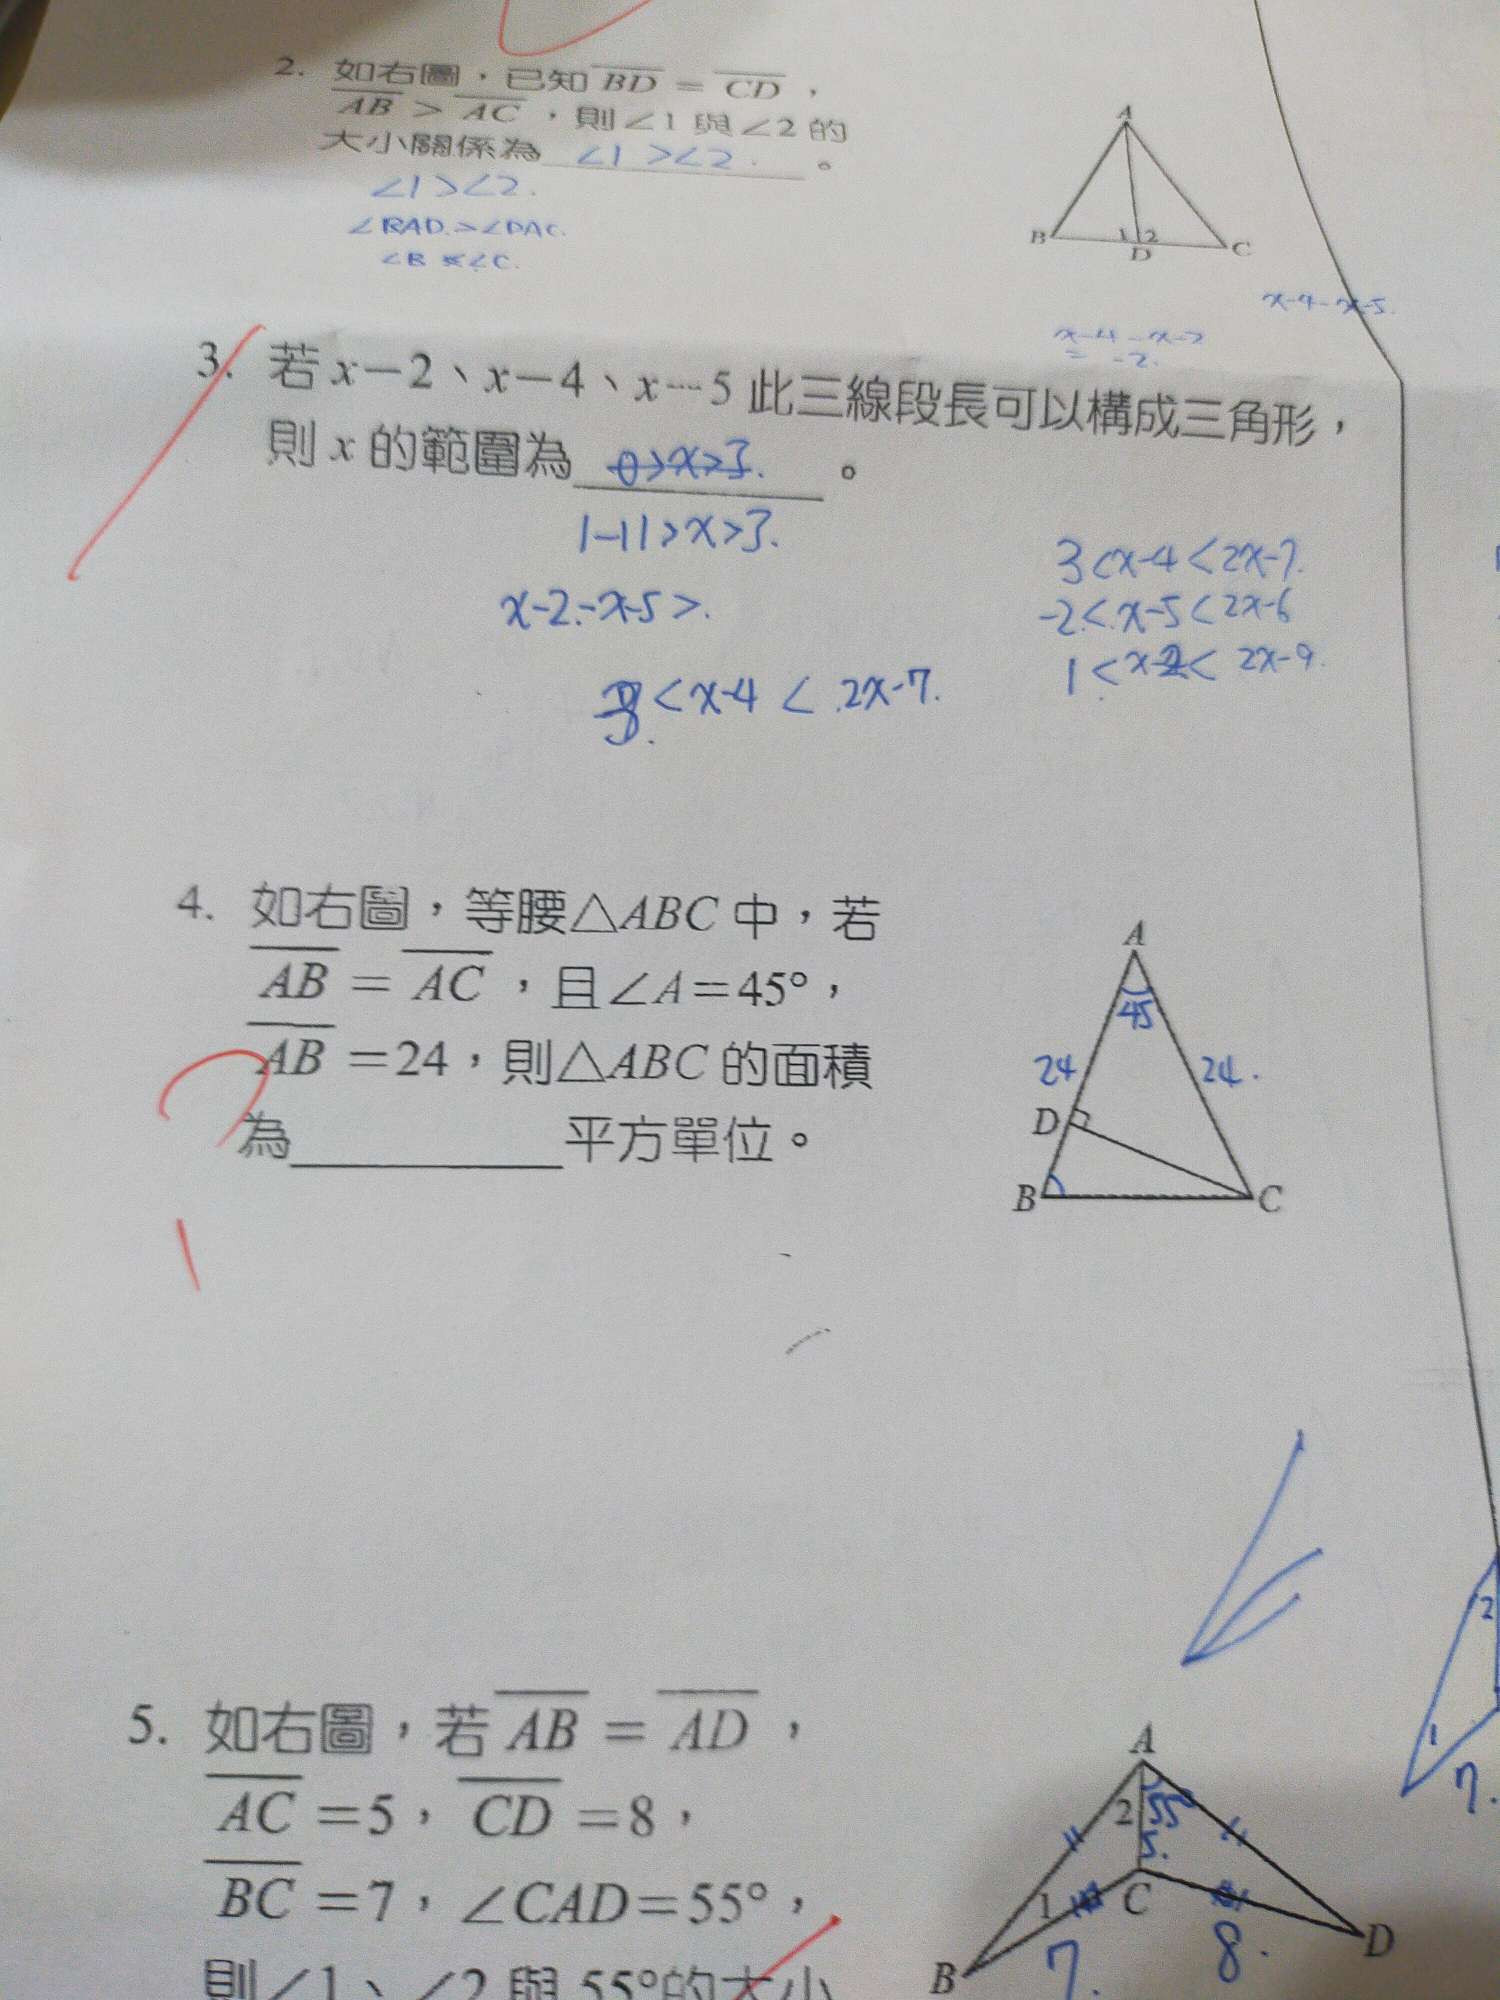 2. 如右圖，已知 BD = CD，
AB > AC，則∠1 與∠2 的
大小關係為 ∠1 >∠2. 。
∠1 >∠2.
∠BAD.>∠DAC.
∠B ∠C.
A
B
1
2
D
C
x-4-x-5.
x-4-x-2
= -2.
3. 若 x－2、x－4、x－5 此三線段長可以構成三角形，
則 x 的範圍為 0>x>3. 。
1-11>x>3.
x-2.-x-5>.
3<x-4<2x-7.
-2<.x-5<2x-6
1<x-2< 2x-9.
<x-4 < .2x-7.
4. 如右圖，等腰△ABC 中，若
AB = AC，且∠A＝45°，
AB ＝24，則△ABC 的面積
為 平方單位。
A
45
24
24.
D
B
C
5. 如右圖，若 AB = AD，
AC ＝5，CD ＝8，
BC ＝7，∠CAD＝55°，
則∠1、∠2 與 55°的大小
A
2
55
5.
1
C
B
7.
8.
D
2
1
7.